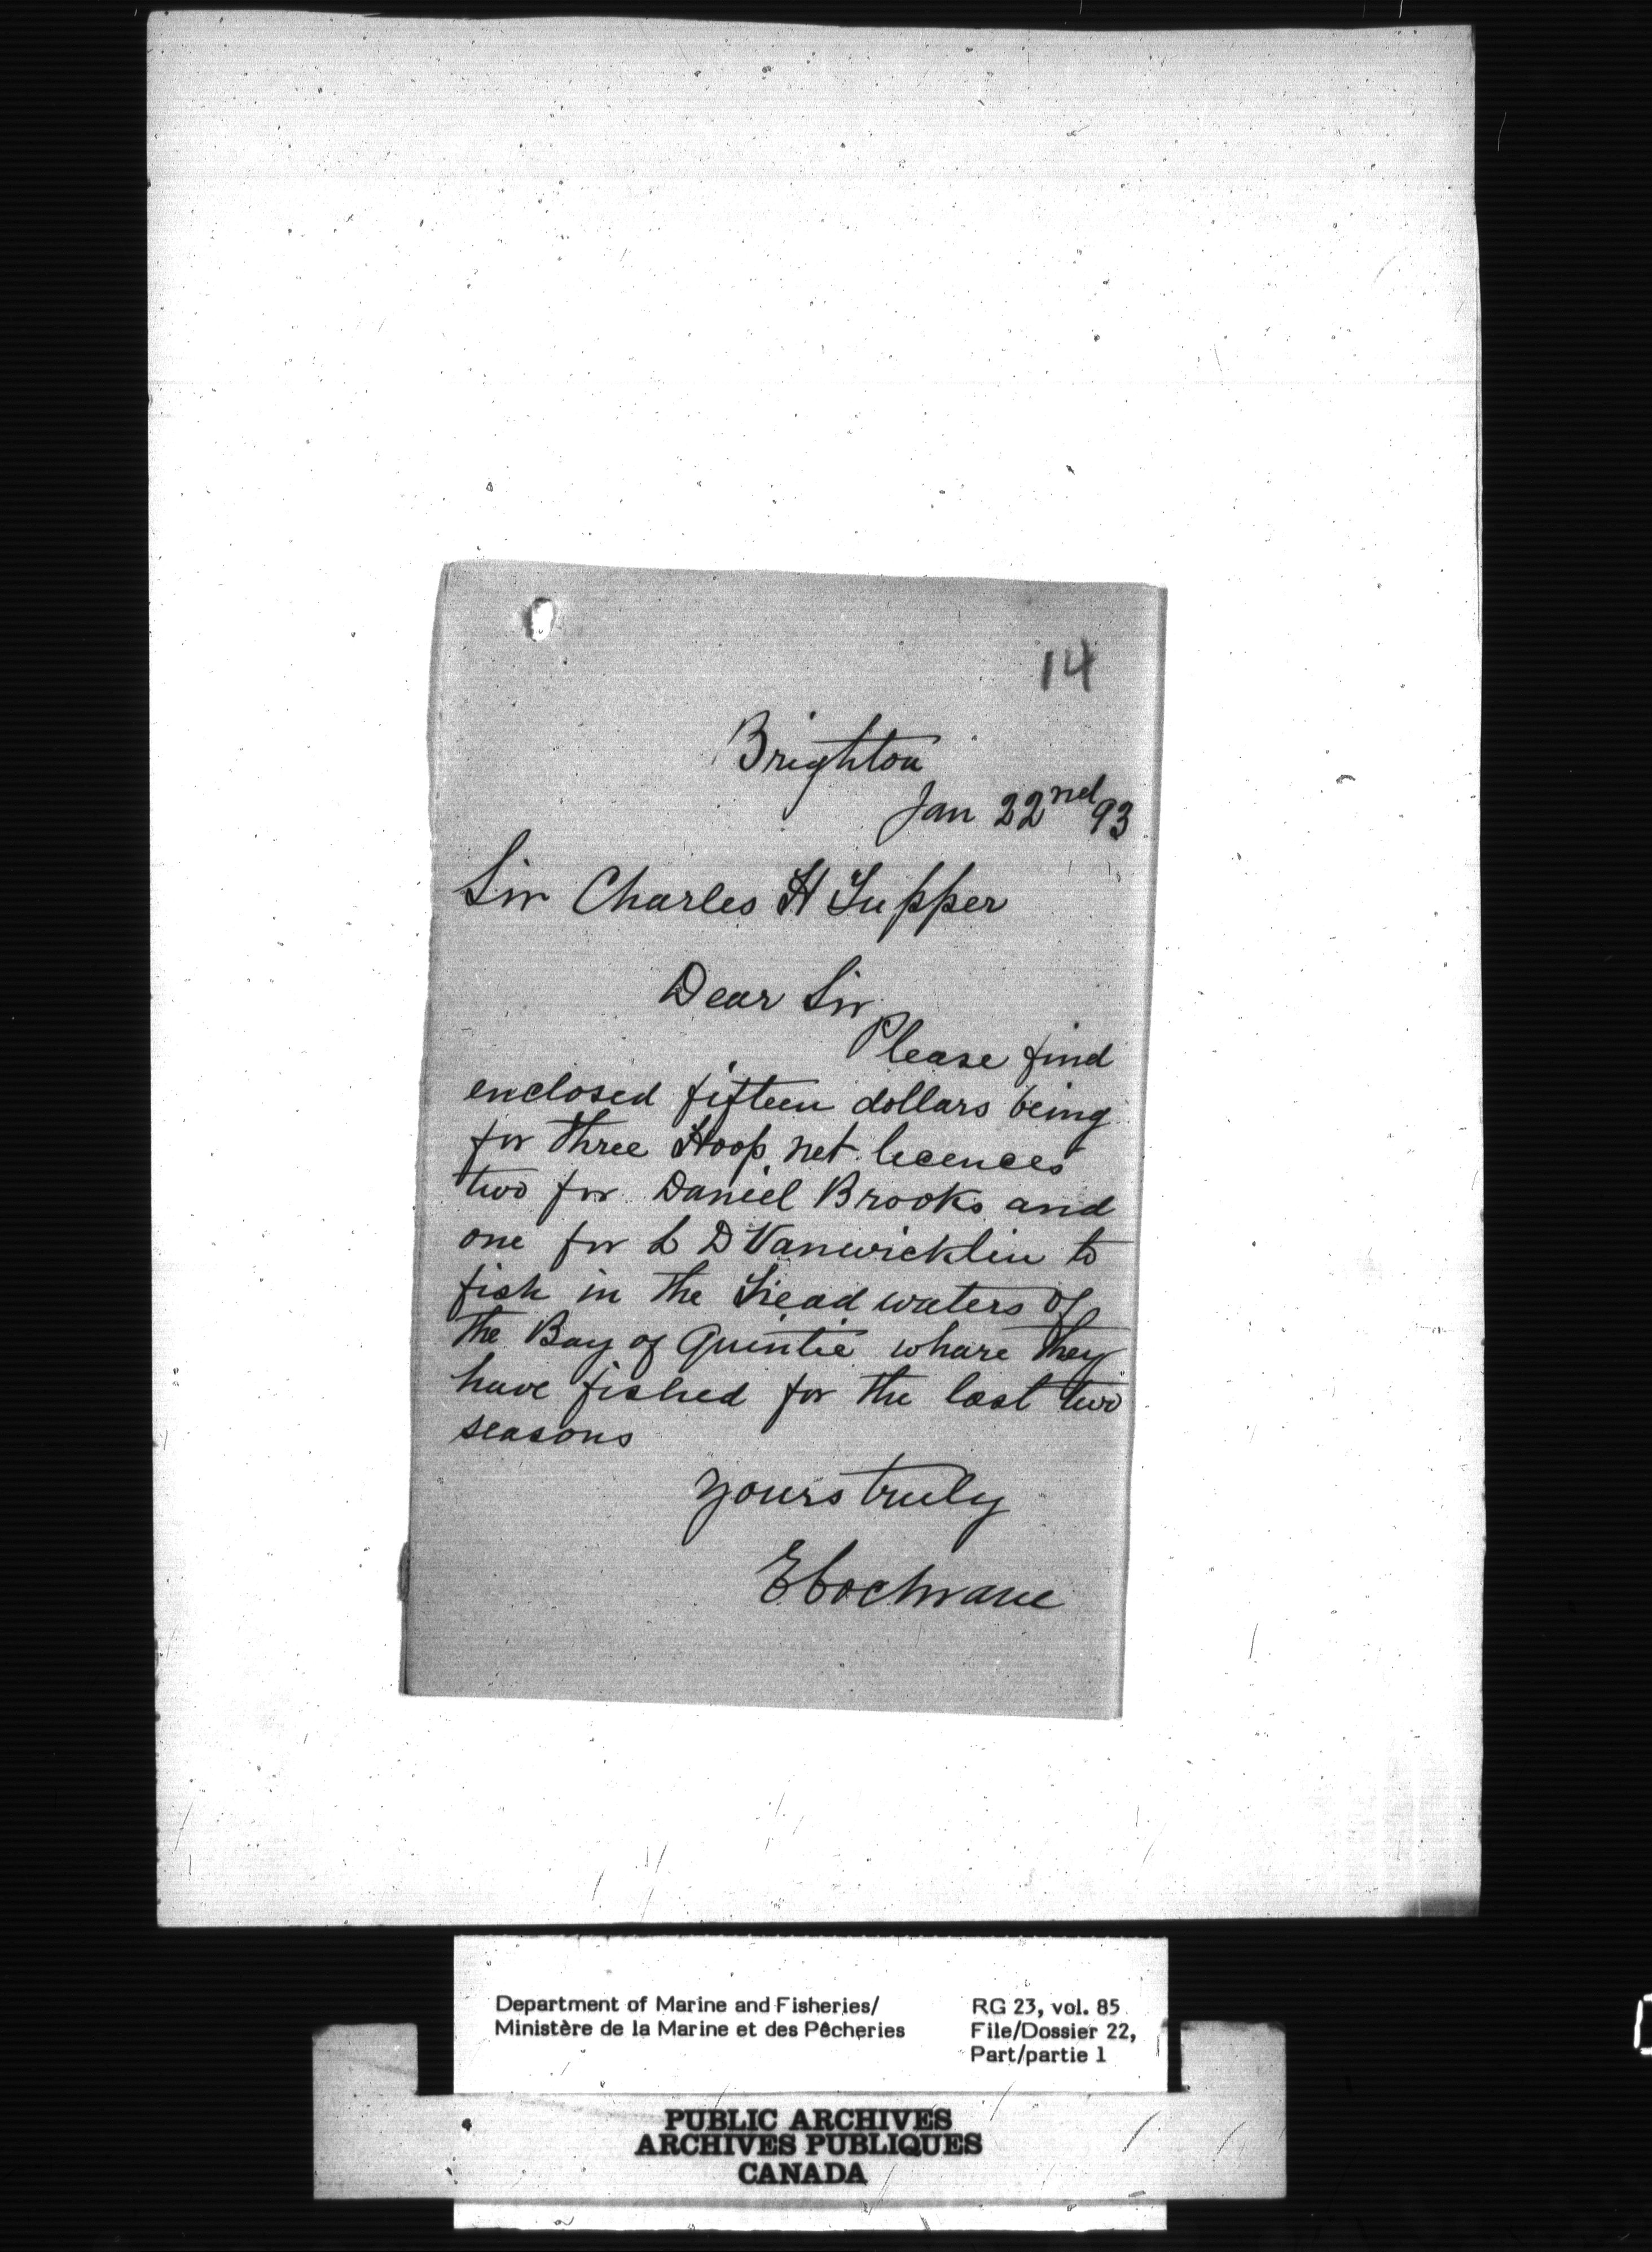 14
Brighton
Jan 22nd 93
Sir Charles H Tupper
Dear Sir
Please find
enclosed fifteen dollars being
for three Hoop net licences
two for Daniel Brooks and
one for L D Vanwicklin to
fish in the Head waters of
the Bay of Quintie whare they
have fished for the last two
seasons
yours truly
E Cochrane
Department of Marine and Fisheries/
Ministère de la Marine et des Pêcheries
RG 23, vol. 85
File/Dossier 22,
Part/partie 1
PUBLIC ARCHIVES
ARCHIVES PUBLIQUES
CANADA